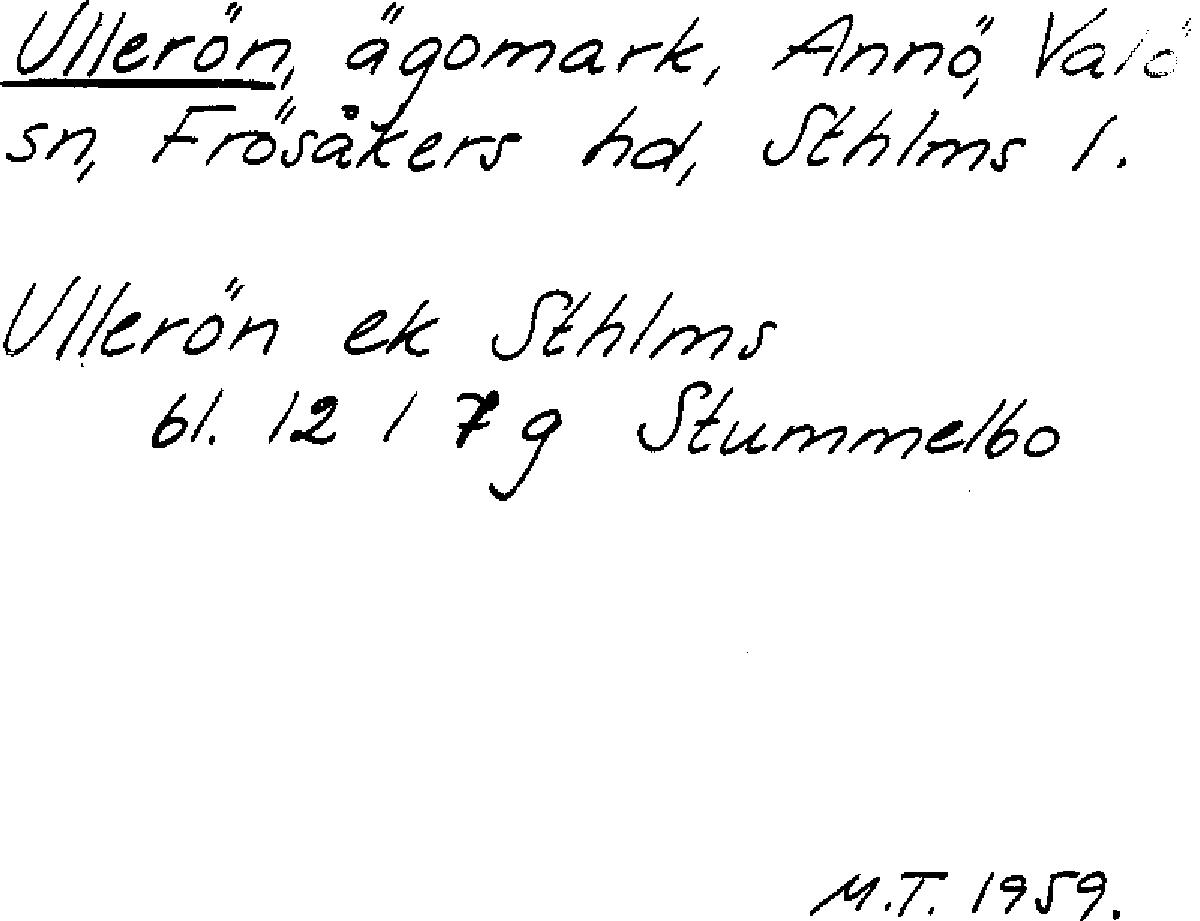 Ullerön, ägomark, Annö, Valö
sn, Frösåkers hd, Sthlms l.
Ullerön ek Sthlms
bl. 12 I 7 g Stummelbo
M.T. 1959.